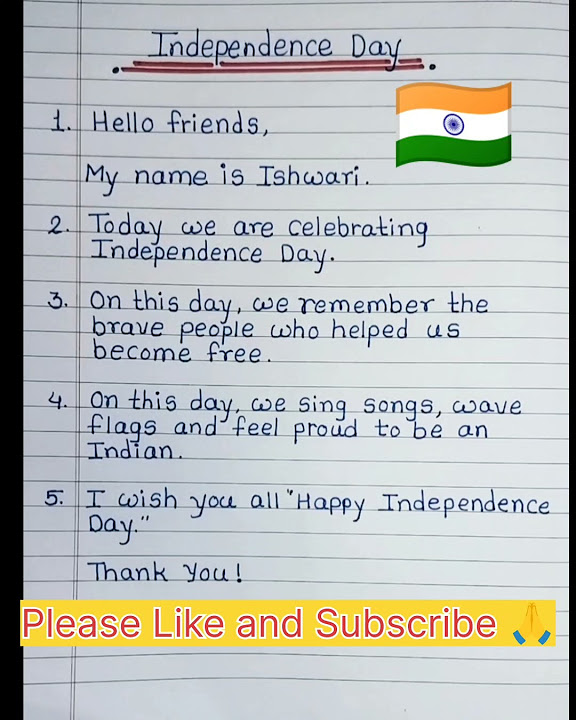 Independence Day
1. Hello friends,
My name is Ishwari.
2. Today we are celebrating
Independence Day.
3. On this day, we remember the
brave people who helped us
become free.
4. On this day, we sing songs, wave
flags and feel proud to be an
Indian.
5. I wish you all "Happy Independence
Day."
Thank you!
Please Like and Subscribe 🙏